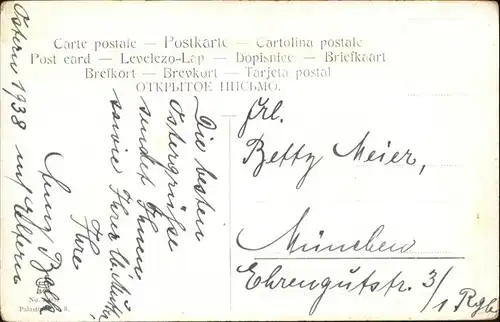 Carte postale — Postkarte — Cartolina postale
Post card — Levelezo-Lap — Dopisnice — Briefkaart
Brefkort — Brevkort — Tarjeta postal
ОТКРЫТОЕ ПИСЬМО.
Ostern 1938
Die besten
Ostergrüsse
sendet Ihnen
sowie Ihrer lb. Mutter
Ihre
u. Eltern
Frl.
Betty Meier,
München
Ehrengutstr. 3/1 Rgb
No.